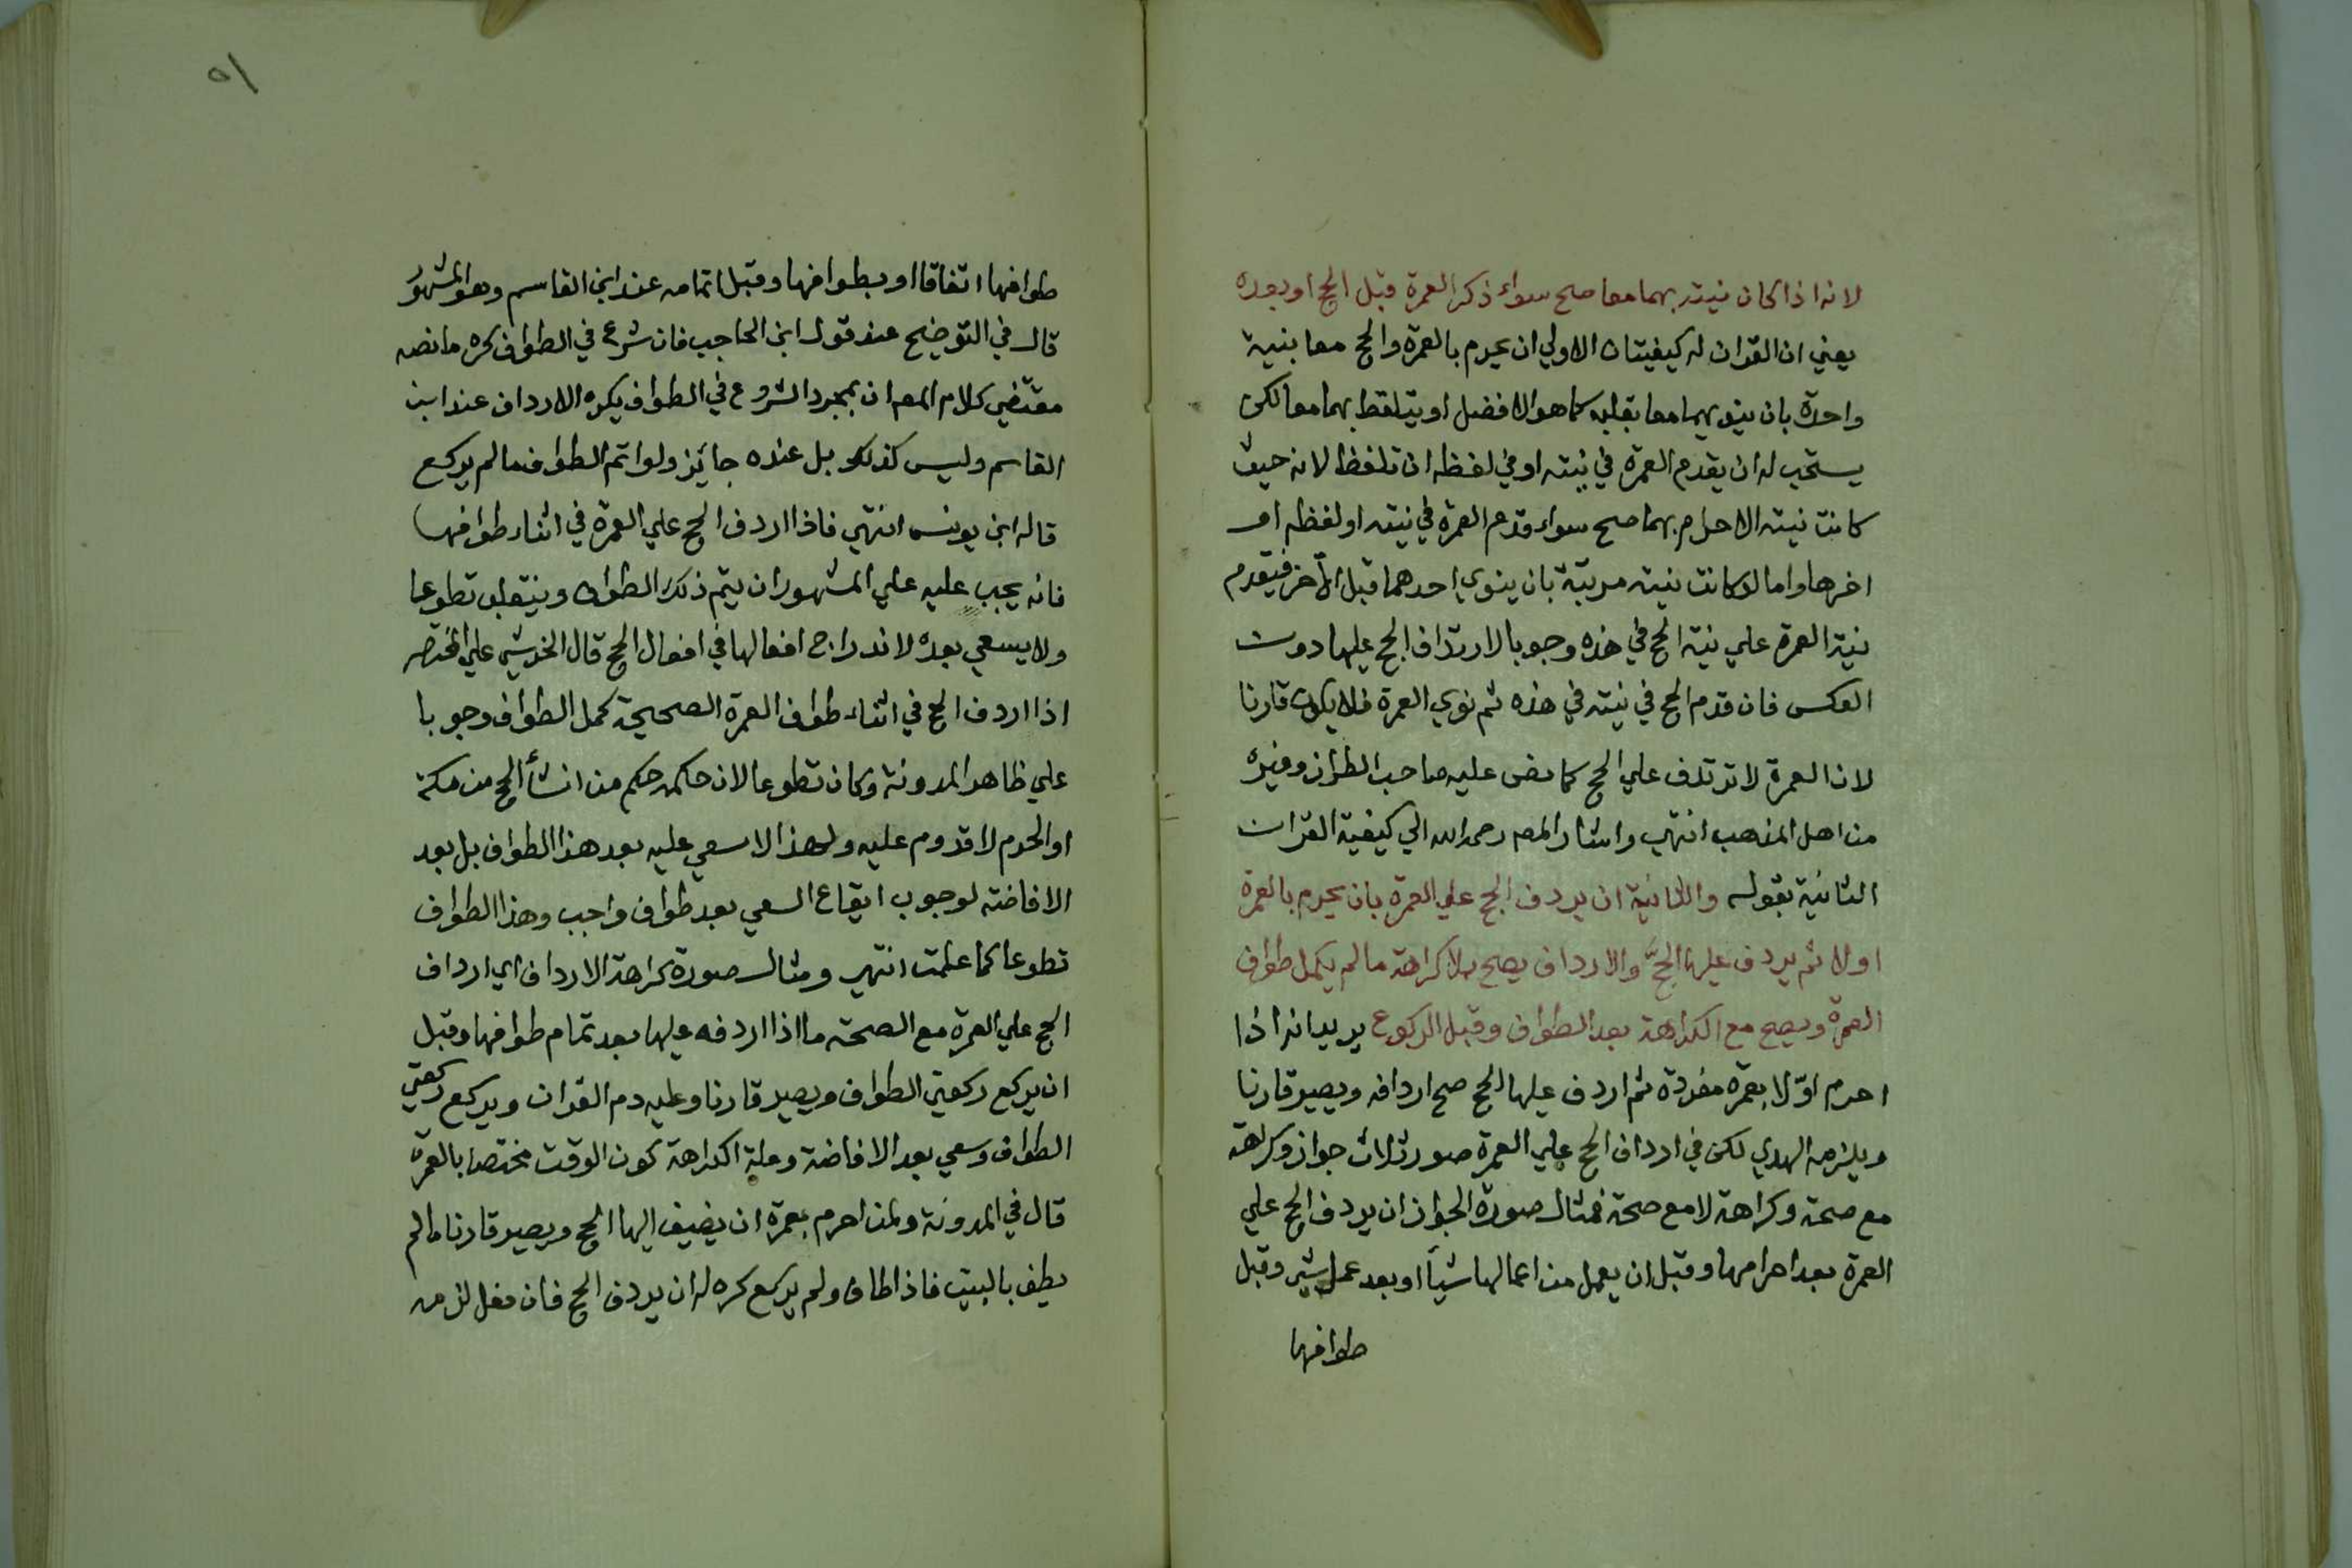 لانه اذا كان نيته بهما معا صح سواء ذكر العمرة قبل الحج او بعده
يعني ان القران له كيفيتان الاولي ان يحرم بالعمرة والحج معا بنية
واحدة بان ينويهما معا بقلبه كما هو الافضل او يتلفظ بهما معا لكن
يستحب له ان يقدم العمرة في نيته او في لفظه ان تلفظ لانه حيث
كانت نيته الاحرام بهما صح سواء قدم العمرة في نيته او لفظه او
اخرها واما لو كانت نيته مرتبة بان ينوي احدهما قبل الآخر فيقدم
نية العمرة علي نية الحج في هذه وجوبا لارتداف الحج عليها دون
العكس فان قدم الحج في نيته في هذه ثم نوي العمرة فلا يكون قارنا
لان العمرة لا ترتدف علي الحج كما نص عليه صاحب الطراز وغيره
من اهل المذهب انتهي واشار المص رحمه الله الي كيفية القران
الثانية بقوله والثانية ان يردف الحج علي العمرة بان يحرم بالعمرة
اولا ثم يردف عليها الحجَّ والارداف يصح بلا كراهة ما لم يكمل طواف
العمرة ويصح مع الكراهة بعد الطواف وقبل الركوع يريد انه اذا
احرم اوّلا بعمرة مفردة ثم اردف عليها الحج صح اردافه ويصير قارنا
ويلزمه الهدي لكن في ارداف الحج علي العمرة صور ثلاث جواز وكراهة
مع صحة وكراهة لا مع صحة فمثال صورة الجواز ان يردف الحج علي
العمرة بعد احرامها وقبل ان يعمل من اعمالها شيأ او بعد عمل شيء وقبل
طوافها
٥١
طوافها اتفاقا او بطوافها وقبل اتمامه عند ابن القاسم وهو المشهور
قال في التوضيح عند قول ابن الحاجب فان شرع في الطواف كره ما نصه
مقتضي كلام المص ان بمجرد الشروع في الطواف يكره الارداف عند ابن
القاسم وليس كذلك بل عنده جائز ولو اتم الطواف ما لم يركع
قاله ابن يونس انتهي فاذا اردف الحج علي العمرة في اثناء طوافها
فانه يجب عليه علي المشهور ان يتم ذلك الطواف وينقلب تطوعا
ولا يسعي بعده لاندراج افعالها في افعال الحج قال الخرشي علي المختصر
اذا اردف الحج في اثناء طواف العمرة الصحيحة كمل الطواف وجوبا
علي ظاهر المدونة وكان تطوعا لان حكمه حكم من انشأ الحج من مكة
او الحرم لا قدوم عليه ولهذا لا سعي عليه بعد هذا الطواف بل بعد
الافاضة لوجوب ايقاع السعي بعد طواف واجب وهذا الطواف
تطوعا كما علمت انتهي ومثال صورة كراهة الارداف اي ارداف
الحج علي العمرة مع الصحة ما اذا اردفه عليها بعد تمام طوافها وقبل
ان يركع ركعتي الطواف ويصير قارنا وعليه دم القران ويركع ركعتي
الطواف وسعي بعد الافاضة وعلة الكراهة كون الوقت مختصا بالعمرة
قال في المدونة ولمن احرم بعمرة ان يضيف اليها الحج ويصير قارنا ما لم
يطف بالبيت فاذا طاف ولم يركع كره له ان يردف الحج فان فعل لزمه